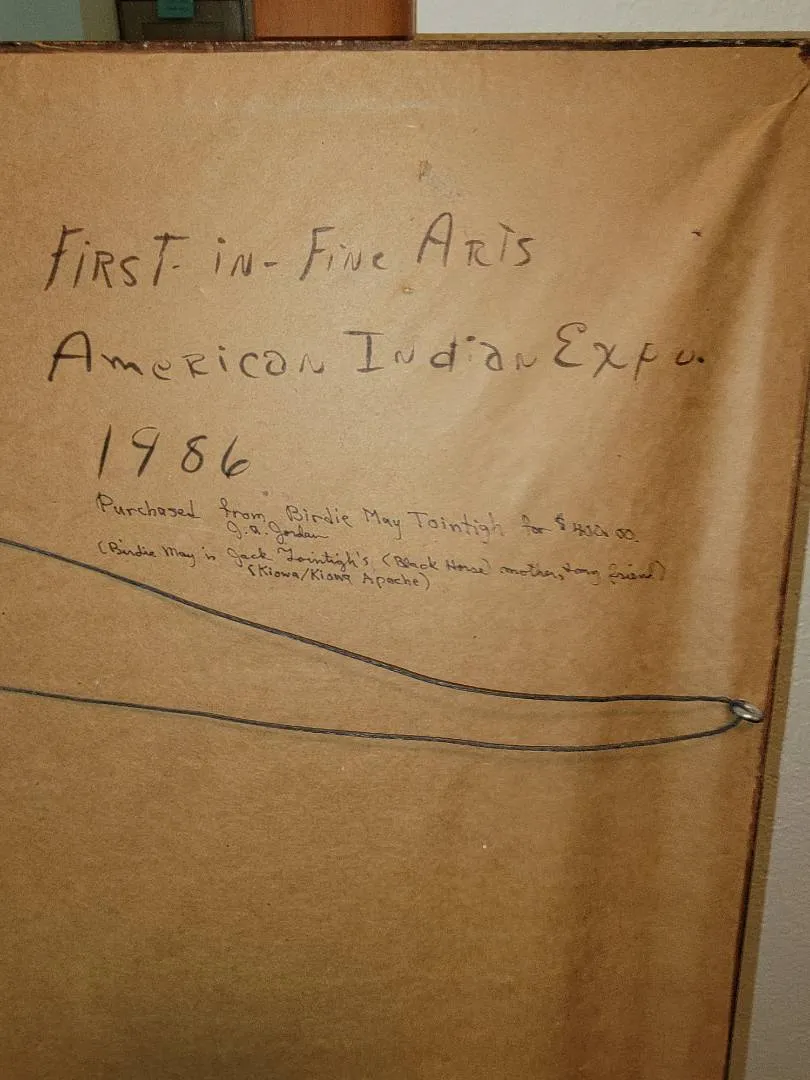 FiRST- iN- FiNe ARTS
AmeRicaN INdiaN Expo.
1986
Purchased from Birdie May Tointigh for $400.00.
J.A. Jordan
(Birdie May is Jack Tointigh's (Black Horse) mother, friend)
(Kiowa/Kiowa Apache)